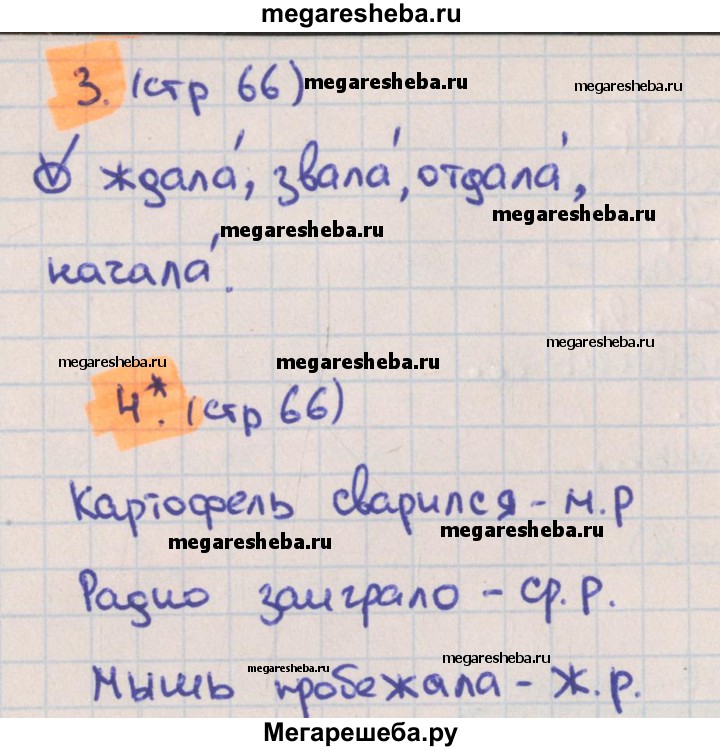 megaresheba.ru
3. (стр 66) megaresheba.ru megaresheba.ru
ждала́, звала́, отдала́,
megaresheba.ru
megaresheba.ru
начала́.
megaresheba.ru
megaresheba.ru megaresheba.ru
4*. (стр 66)
Картофель сварился - м.р
megaresheba.ru megaresheba.ru
Радио заиграло - ср. р.
megaresheba.ru megaresheba.ru
Мышь пробежала - ж. р.
Мегарешеба.ру